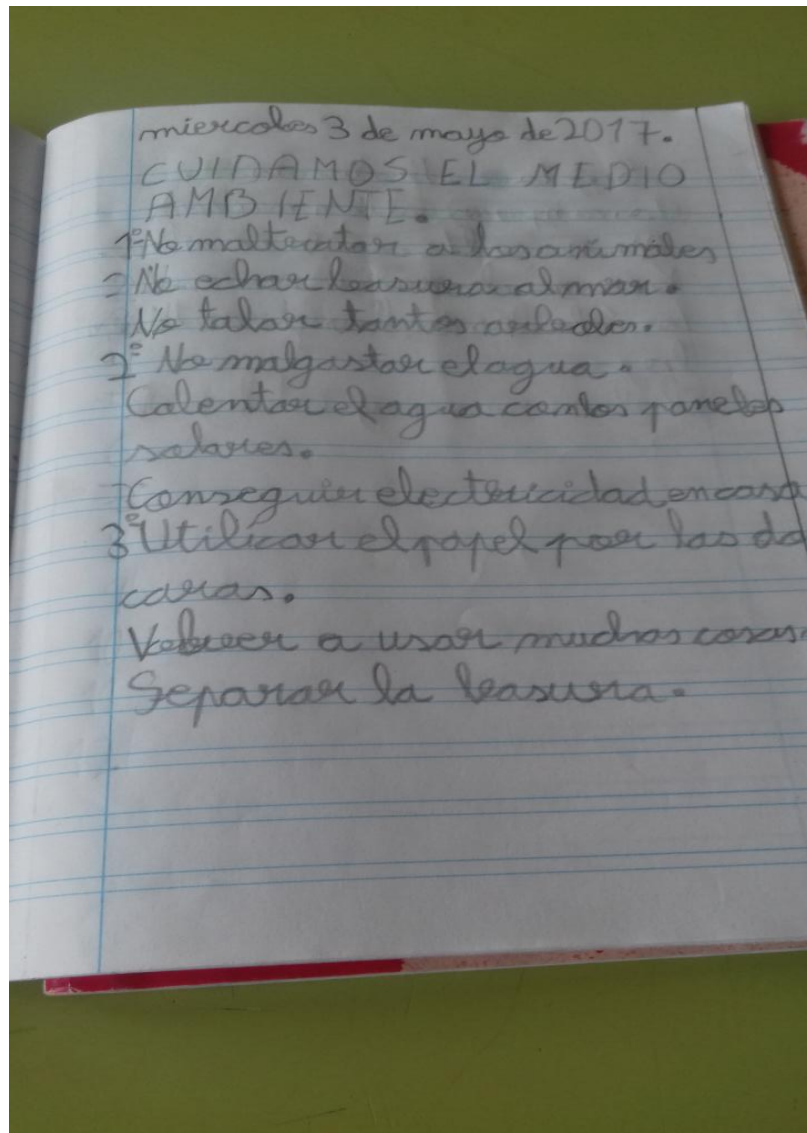 miercoles 3 de mayo de 2017.
CUIDAMOS EL MEDIO
AMBIENTE.
1º No maltratar a los animales
- No echar basura al mar.
No talar tantos arboles.
2º No malgastar el agua.
Calentar el agua con los paneles
solares.
- Conseguir electricidad en casa
3º Utilizar el papel por las do
caras.
Volver a usar muchas cosas
Separar la basura.